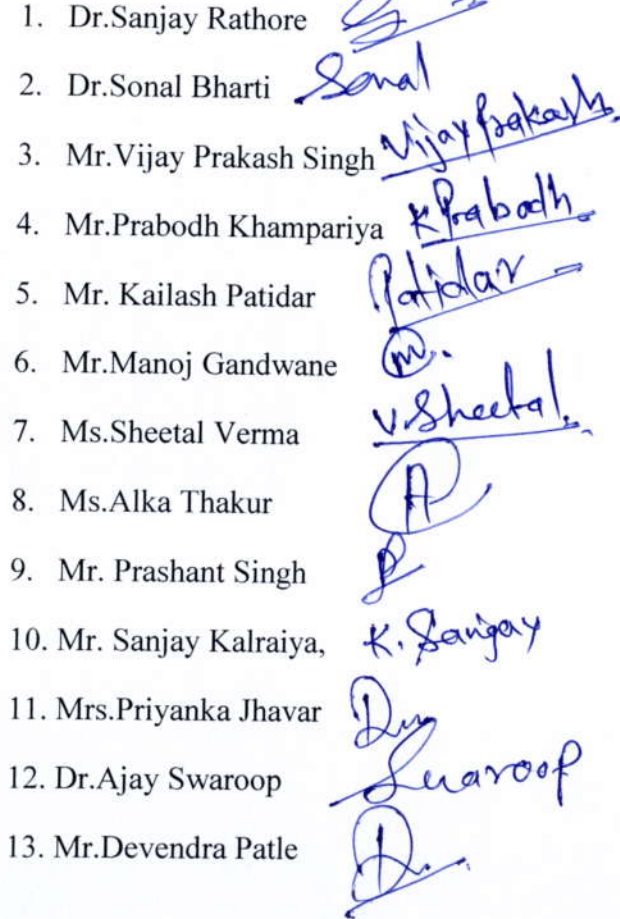 1. Dr.Sanjay Rathore
2. Dr.Sonal Bharti Sonal
3. Mr.Vijay Prakash Singh Vijay Prakash.
4. Mr.Prabodh Khampariya K Prabodh
5. Mr. Kailash Patidar Patidar
6. Mr.Manoj Gandwane m.
7. Ms.Sheetal Verma V.Sheetal.
8. Ms.Alka Thakur A
9. Mr. Prashant Singh P
10. Mr. Sanjay Kalraiya, K. Sanjay
11. Mrs.Priyanka Jhavar
12. Dr.Ajay Swaroop Swaroop
13. Mr.Devendra Patle D.